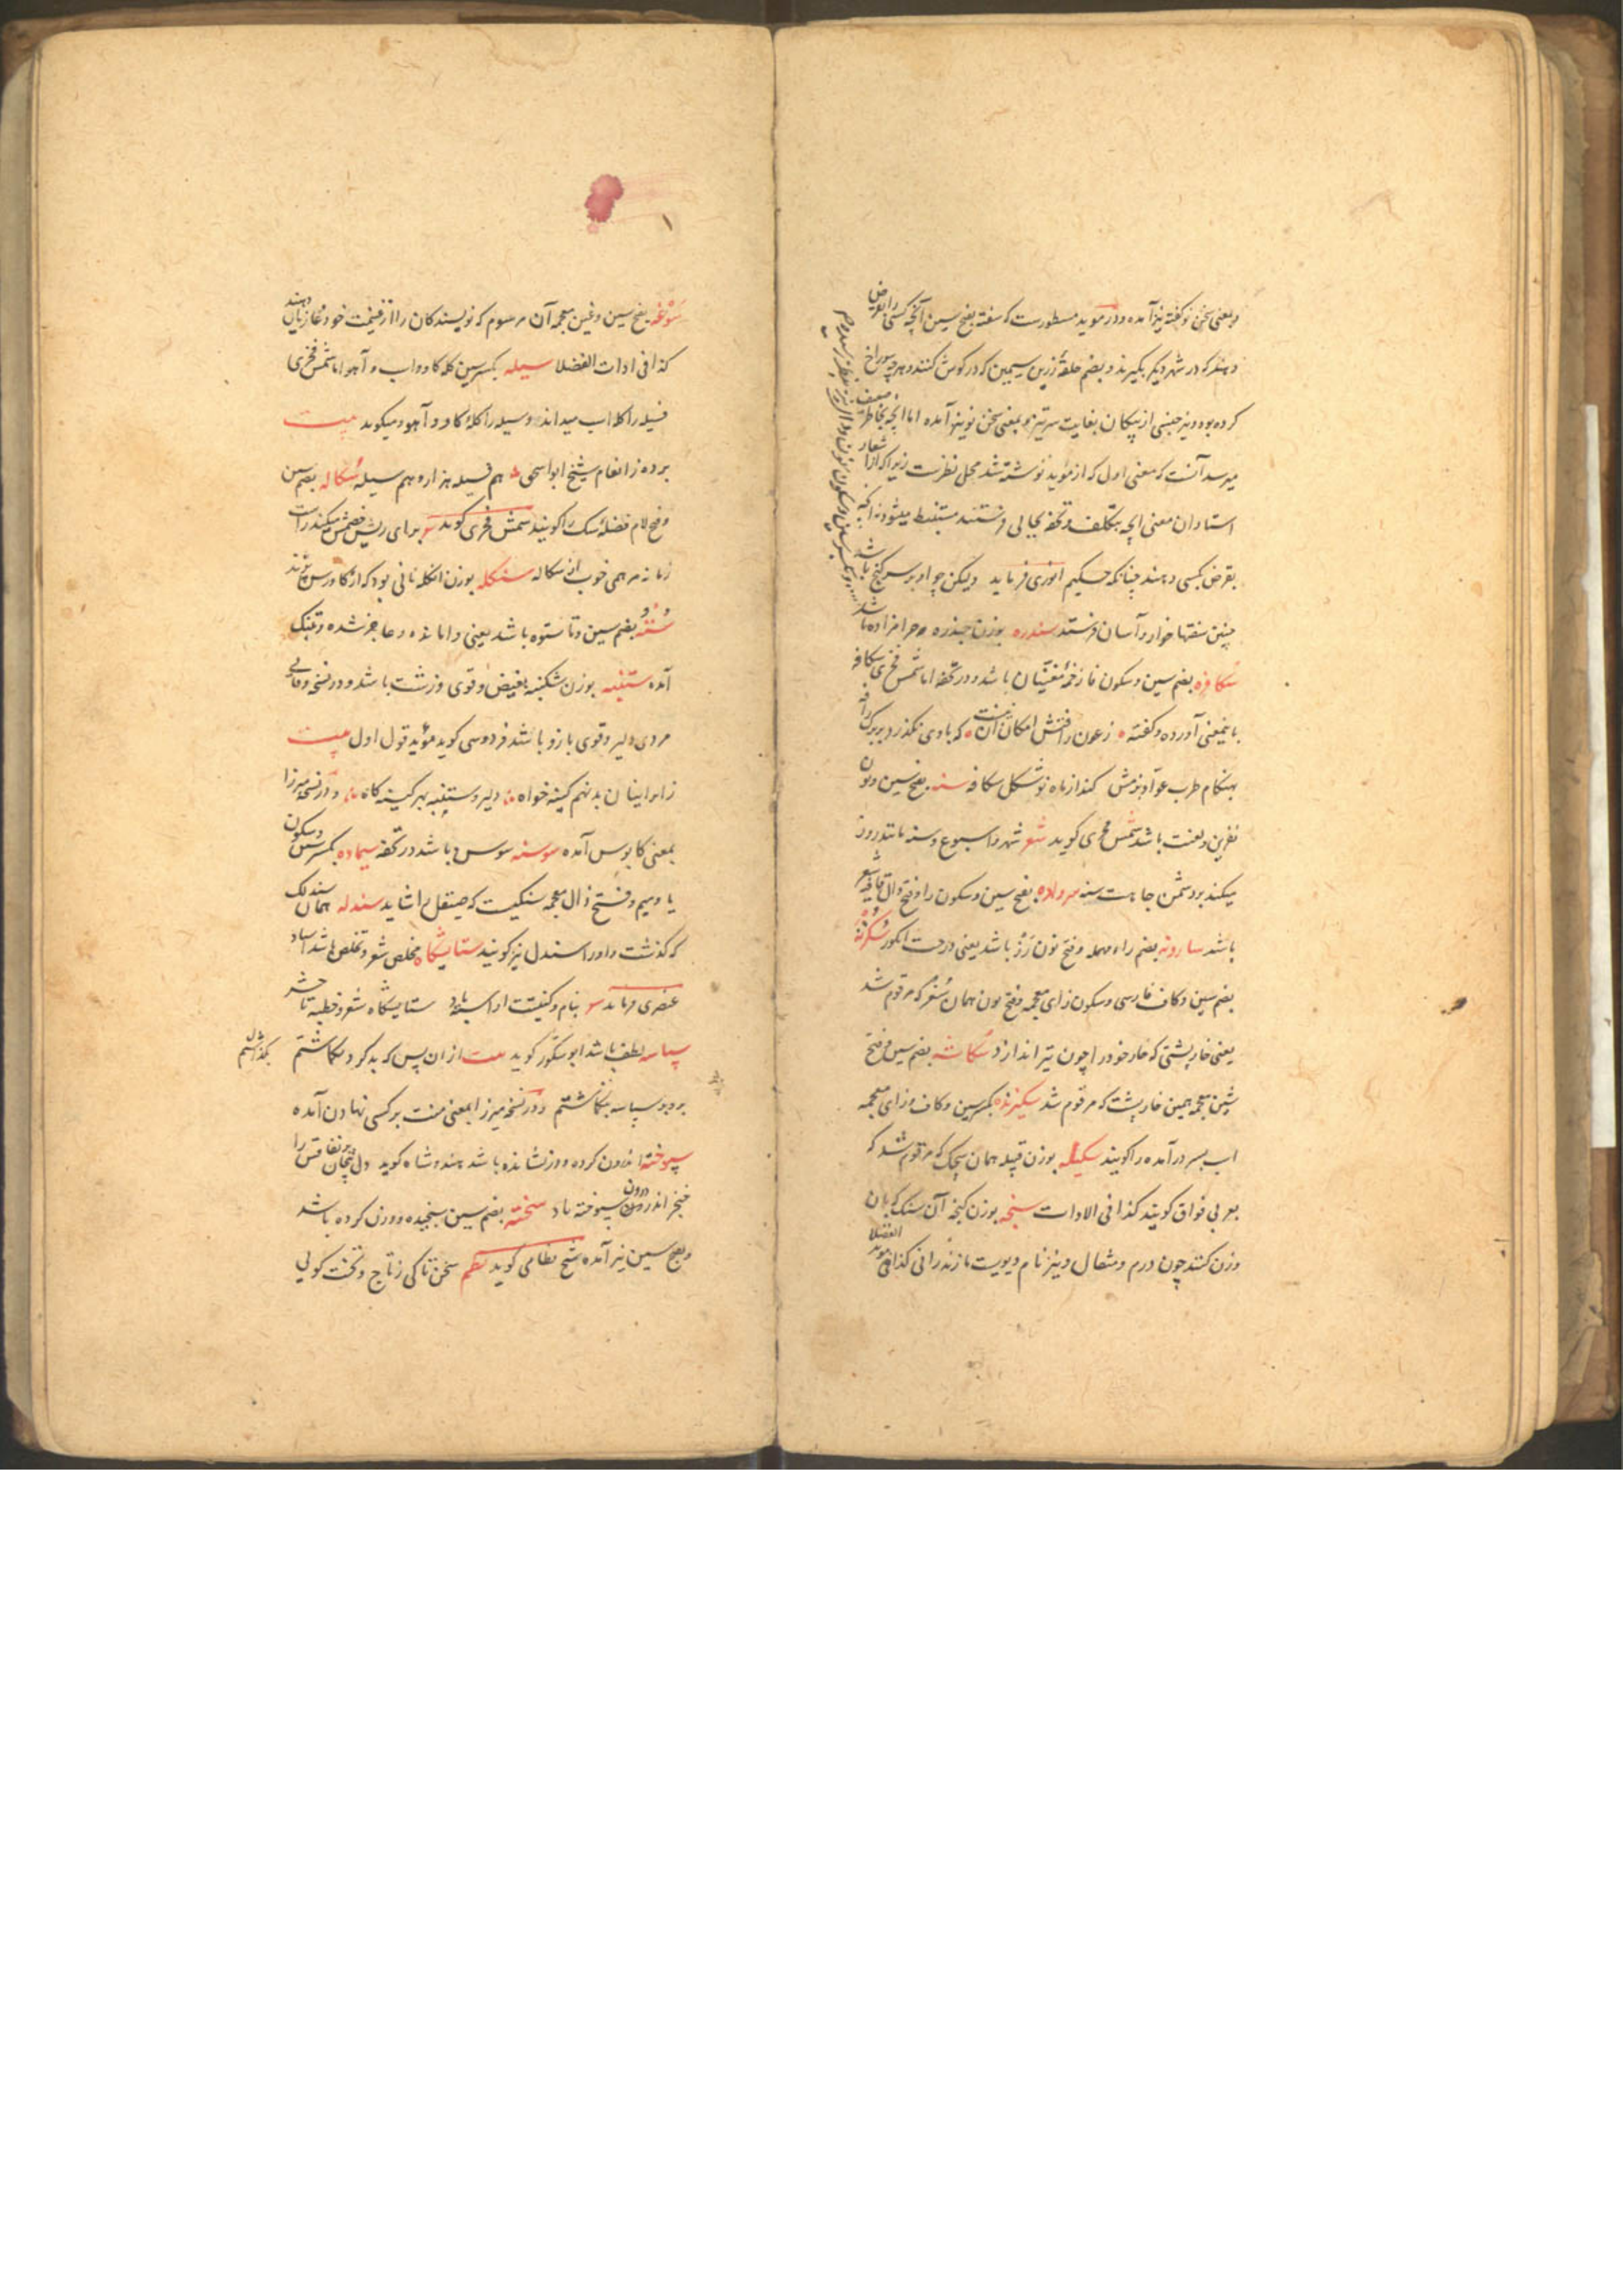 وبمعنی سخن نو کفته نیز آمده ودر موید مسطورست که سفته بفتح سین آنچه کسی را بقرض
دهند که در شهر دیگر بگیرند و بضم حلقهٔ زرین وسیمین که در کوش کنند وهرچه سوراخ
کرده بود ونیز جنسی از پیکان بغایت سر تیز وبمعنی سخن نو نیز آمده اما آنچه بخاطر ضعیف
میرسد آنست که معنی اول که از موید نوشته شد محل نظرست زیرا که از اشعار
استادان معنی آنچه بتکلف وتحفه بجایی فرستند مستنبط میشود نه آنچه
بقرض کسی دهند چنانکه حکیم انوری فرماید ولیکن چو او بر سر کنج باشد
چنین سفتها خوار وآسان فرستد سندره بوزن جندره حرامزاده باشد
سکافره بضم سین وسکون فا زخمهٔ مغنیان باشد ودر تحفه اما شمس فخری سکافه
باینمعنی آورده وکفته زعون رافتش امکان آن نیست که بادی بگذرد بر برک
بهنکام طرب عواد بزمش کند از ماه نو شکل سکافه سنه بفتح سین ونون
نفرین ولعنت باشد شمس فخری کوید شعر شهر واسبوع وسنه مانند روز
میکند بر دشمن جاهت سنه سرواده بفتح سین وسکون را وفتح دال قافیه شعر
باشد سارونه بضم راء مهمله وفتح نون رز باشد یعنی درخت انکور سکرنه
بضم سین وکاف فارسی وسکون زای معجمه وفتح نون همان سغر که مرقوم شد
یعنی خارپشتی که خار خود را چون تیر اندازد سکاشه بضم سین وفتح
شین معجمه همین خارپشت که مرقوم شد سکیزنده بکسر سین وکاف وزای معجمه
اسب بسر درآمده را کویند سکیله بوزن قبیله همان سچک که مرقوم شد که
بعربی فواق کویند کذا فی الادات سنجه بوزن کنجه آن سنک که بان
وزن کنند چون درم ومثقال ونیز نام دیویست مازندرانی کذا فی موید الفضلا
سوغه بفتح سین وغین معجمه آن مرسوم که نویسندکان را از غنیمت خود غازیان دهند
کذا فی ادات الفضلا سیله بکسر سین کله کاو واسب وآهو اما شمس فخری
فسیله را کله اسب میداند وسیله را کله کاو وآهو ومیکوید بیت
برده ز انعام شیخ ابو اسحق هم فسیله هزار وهم سیله سکاله بضم سین
وفتح لام فضلهٔ سک را کویند شمس فخری کوید برای ریش خصمش میکند راست
زمانه مرهمی خوب از سکاله سنکله بوزن انکله نانی بود که از کاورس پزند
ستوه بضم سین وتا ستوه باشد یعنی وامانده وعاجز شده وتنک
آمده ستنبه بوزن شکنبه بغیض وقوی وزشت باشد ودر نسخه وفایی
مردی دلیر وقوی بازو باشد فردوسی کوید موید قول اول بیت
ز ایرانیان بد تهم کینه خواه دلیر وستنبه بهر کینه کاه ودر نسخه میرزا
بمعنی کابوس آمده سوسنه سوس باشد در تحفه سیماده بکسر سین وسکون
یا ومیم وفتح ذال معجمه سنکیست که صیقل را شاید سندله همان سندلک
که کذشت واورا سندل نیز کویند ستایشکاه مخلص شعر وتخلص باشد استاد
عنصری فرماید بنام وکنیتت آراسته باد ستایشکاه شعر وخطبه تا حشر
سپاسه لطف باشد ابو شکور کوید بیت از آن پس که بد کرد بکماشتم بگذاشتم
بدو بر سپاسه بنکاشتم ودر نسخه میرزا بمعنی منت بر کسی نهادن آمده
سپوخته اندرون کرده ودرنشانده باشد هندوشاه کوید
خنجر اندر درون سپوخته باد سخته بضم سین سنجیده ووزن کرده باشد
وبفتح سین نیز آمده شیخ نظامی کوید نظم سخن تا کی ز تاج وتخت کویی